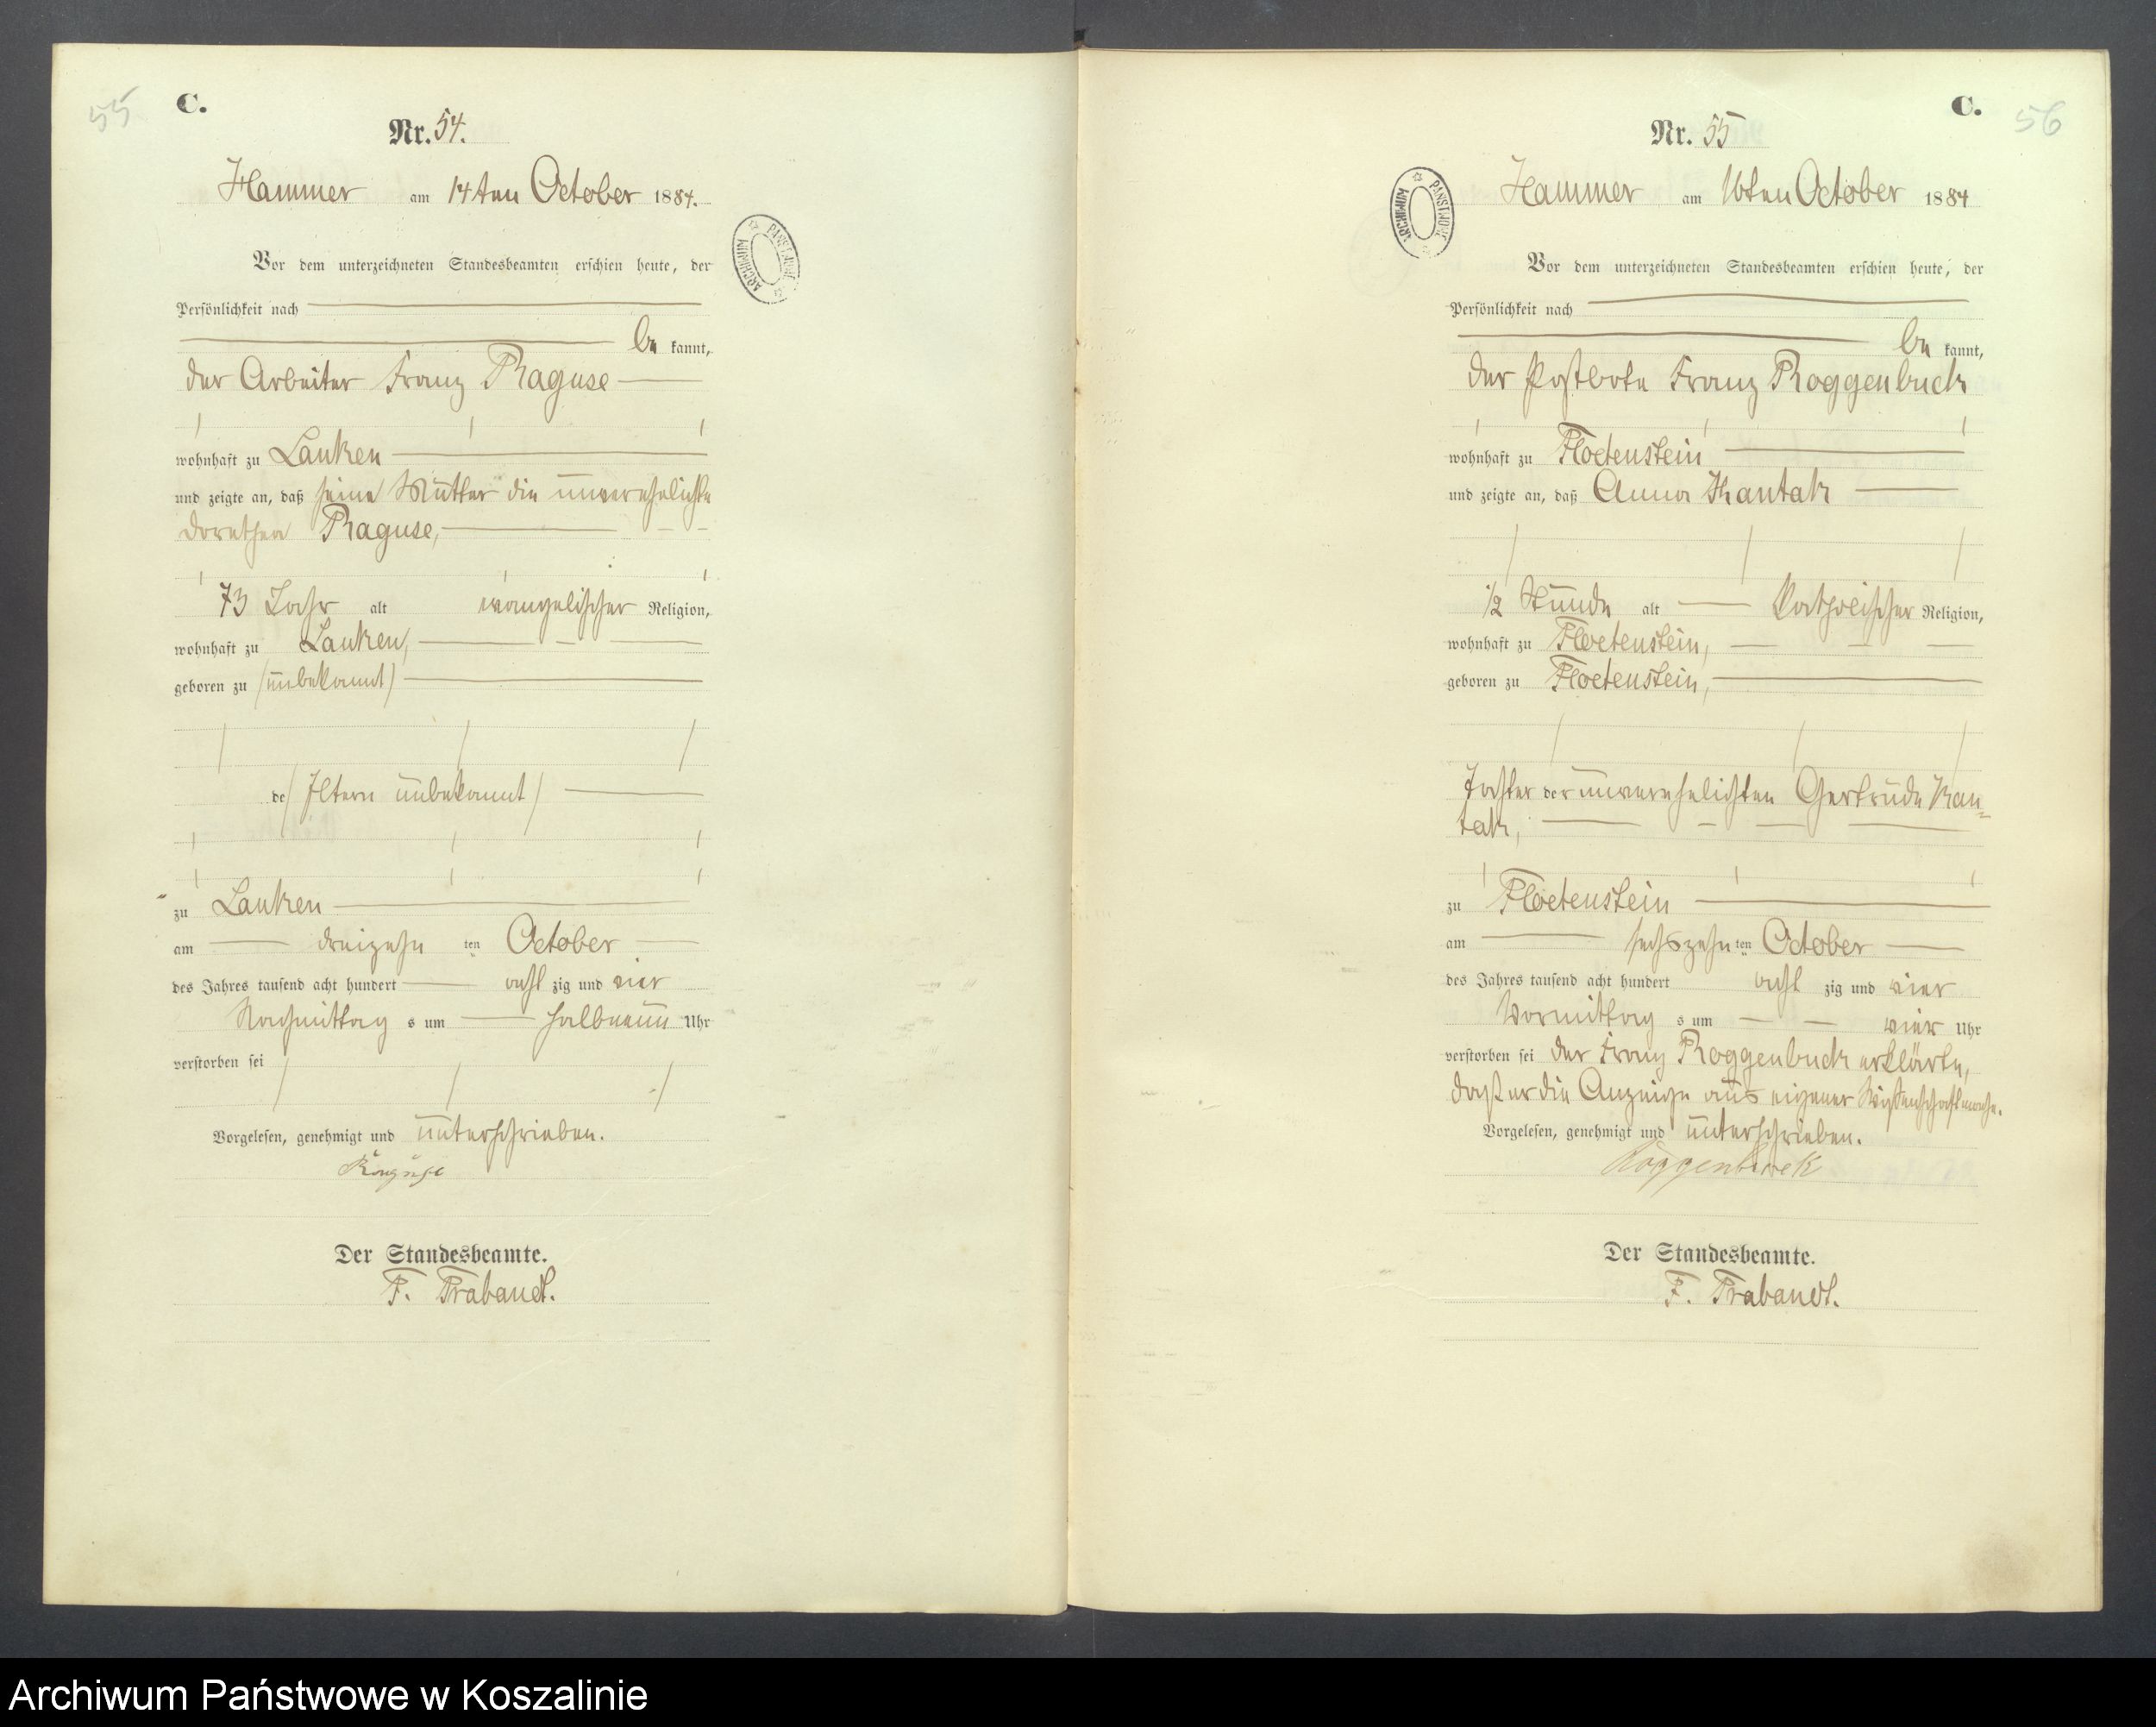 55
C.
Nr. 54.
Hammer am 14ten October 1884.
Vor dem unterzeichneten Standesbeamten erschien heute, der
Persönlichkeit nach
be kannt,
der Arbeiter Franz Raguse
wohnhaft zu Lanken
und zeigte an, daß seine Mutter die unverehelichte
Dorothea Raguse,
73 Jahr alt evangelischer Religion,
wohnhaft zu Lanken,
geboren zu (unbekannt)
de (Eltern unbekannt)
zu Lanken
am dreizehn ten October
des Jahres tausend acht hundert acht zig und vier
Nachmittag s um halbneun Uhr
verstorben sei
Vorgelesen, genehmigt und unterschrieben.
Raguse
Der Standesbeamte.
F. Trabandt.
ARCHIWUM PAŃSTWOWE
C.
56
Nr. 55
Hammer am 16ten October 1884
ARCHIWUM PAŃSTWOWE
Vor dem unterzeichneten Standesbeamten erschien heute, der
Persönlichkeit nach
be kannt,
der Postbote Franz Roggenbuck
wohnhaft zu Floetenstein
und zeigte an, daß Anna Kantak
1/2 Stunde alt katholischer Religion,
wohnhaft zu Floetenstein,
geboren zu Floetenstein,
Tochter der unverehelichten Gertrude Kan=
tak,
zu Floetenstein
am sechszehn ten October
des Jahres tausend acht hundert acht zig und vier
Vormittag s um vier Uhr
verstorben sei der Franz Roggenbuck erklärte,
daß er die Anzeige aus eigener Wissenschaft mache.
Vorgelesen, genehmigt und unterschrieben.
Roggenbuck
Der Standesbeamte.
F. Trabandt.
Archiwum Państwowe w Koszalinie